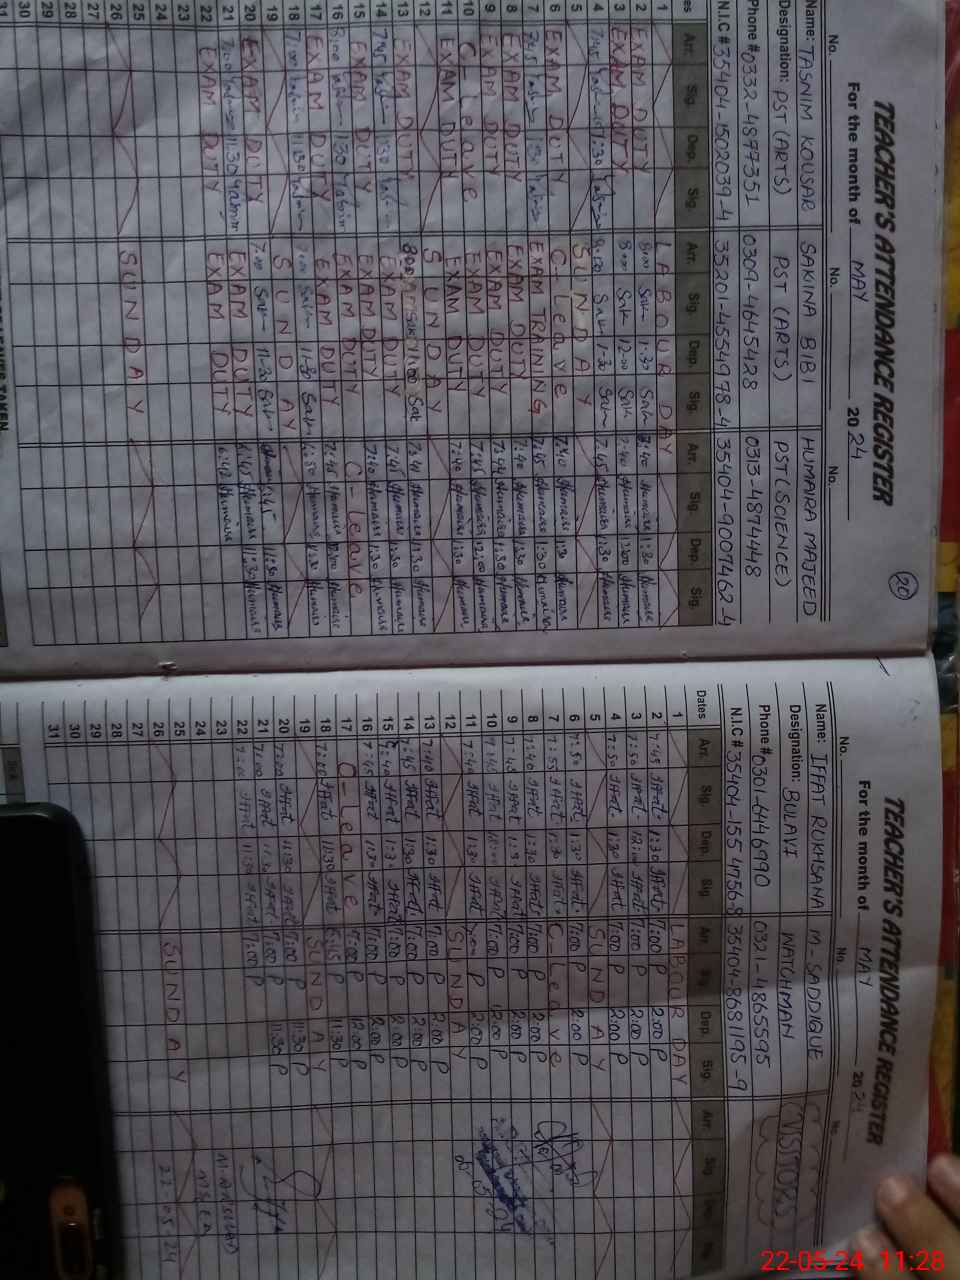 TEACHER'S ATTENDANCE REGISTER
20
For the month of MAY 2024
No. No. No.
Name: TASNIM KOUSAR SAKINA BIBI HUMAIRA MAJEED
Designation: PST (ARTS) PST (ARTS) PST (SCIENCE)
Phone # 0332-4897351 0309-4645428 0313-4874448
N.I.C # 35404-1502039-4 35201-4554978-4 35404-9007462-4
Arr. Sig. Dep. Sig. Arr. Sig. Dep. Sig. Arr. Sig. Dep. Sig.
1 LABOUR DAY
2 EXAM DUTY 8:00 Sak 1:30 Sak 7:40 Humaira 1:30 Humaira
3 EXAM DUTY 8:00 Sak 12:00 Sak 7:40 Humaira 12:00 Humaira
4 7:45 1:30 8:00 Sak 1:30 Sak 7:45 Humaira 1:30 Humaira
5 SUNDAY
6 EXAM DUTY C-Leave 7:40 Humaira 1:30 Humaira
7 7:45 1:30 EXAM TRAINING 7:45 Humaira 1:30 Humaira
8 EXAM DUTY EXAM DUTY 7:40 Humaira 1:30 Humaira
9 EXAM DUTY EXAM DUTY 7:44 Humaira 1:30 Humaira
10 C-Leave EXAM DUTY 7:45 Humaira 12:00 Humaira
11 EXAM DUTY EXAM DUTY 7:40 Humaira 1:30 Humaira
12 SUNDAY
13 EXAM DUTY 8:00 Sak 1:00 Sak 7:41 Humaira 1:30 Humaira
14 7:45 1:30 EXAM DUTY 7:45 Humaira 1:30 Humaira
15 EXAM DUTY EXAM DUTY 7:40 Humaira 1:30 Humaira
16 8:00 1:30 EXAM DUTY C-Leave
17 EXAM DUTY EXAM DUTY 7:45 Humaira 12:00 Humaira
18 7:00 11:30 7:00 Sak 11:30 Sak Humaira 11:30 Humaira
19 SUNDAY
20 EXAM DUTY 7:00 Sak 11:30 Sak Humaira 11:30 Humaira
21 7:00 11:30 EXAM DUTY 6:45 Humaira 11:30 Humaira
22 EXAM DUTY EXAM DUTY 6:48 Humaira
23
24
25
26 SUNDAY
27
28
29
30
TEACHER'S ATTENDANCE REGISTER
For the month of MAY 2024
No. No. No.
Name: IFFAT RUKHSANA M-SADDIQUE VISITORS
Designation: BULAVI WATCHMAN
Phone # 0301-6446990 0321-4865595
N.I.C # 35404-1554756-8 35404-8681195-9
Dates Arr. Sig. Dep. Sig. Arr. Sig. Dep. Sig. Arr. Sig.
1 LABOUR DAY
2 7:45 Iffat 1:30 Iffat 7:00 P 2:00 P
3 7:50 Iffat 12:00 Iffat 7:00 P 2:00 P
4 7:50 Iffat 1:30 Iffat 7:00 P 2:00 P
5 SUNDAY
6 7:50 Iffat 1:30 Iffat 7:00 P 2:00 P
7 7:55 Iffat 1:30 Iffat C-Leave
8 7:40 Iffat 1:30 Iffat 7:00 P 2:00 P
9 7:43 Iffat 1:30 Iffat 7:00 P 2:00 P
10 7:40 Iffat 12:00 Iffat 7:00 P 12:00 P
11 7:40 Iffat 1:30 Iffat 7:00 P 2:00 P
12 SUNDAY
13 7:40 Iffat 1:30 Iffat 7:00 P 2:00 P
14 7:45 Iffat 1:30 Iffat 7:00 P 2:00 P
15 7:40 Iffat 1:30 Iffat 7:00 P 2:00 P
16 7:45 Iffat 1:30 Iffat 7:00 P 2:00 P
17 C-Leave 7:00 P 12:00 P
18 7:00 Iffat 11:30 Iffat 6:45 P 11:30 P
19 SUNDAY
20 7:00 Iffat 11:30 Iffat 7:00 P 11:30 P
21 7:00 Iffat 11:30 Iffat 7:00 P 11:30 P
22 7:00 Iffat 11:30 Iffat 7:00 P
23
24
25
26 SUNDAY
27
28
29
30
31
22-05-24
22-05-24 11:28